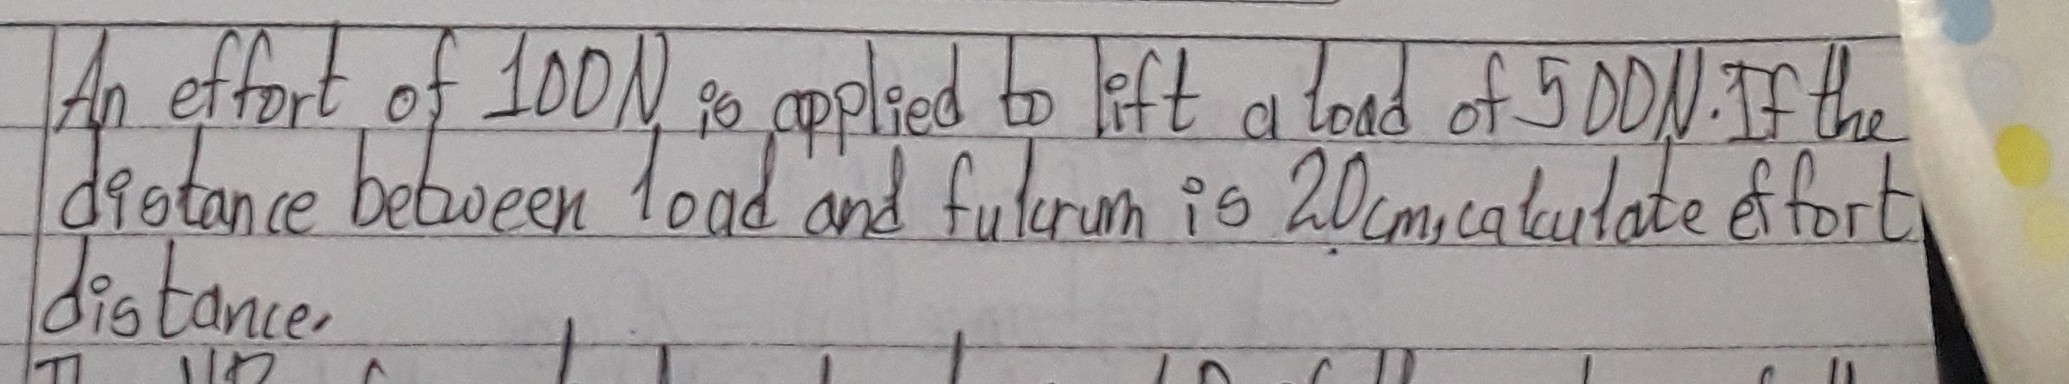 An effort of 100N is applied to lift a load of 500N. If the
distance between load and fulcrum is 20cm, calculate effort
distance.